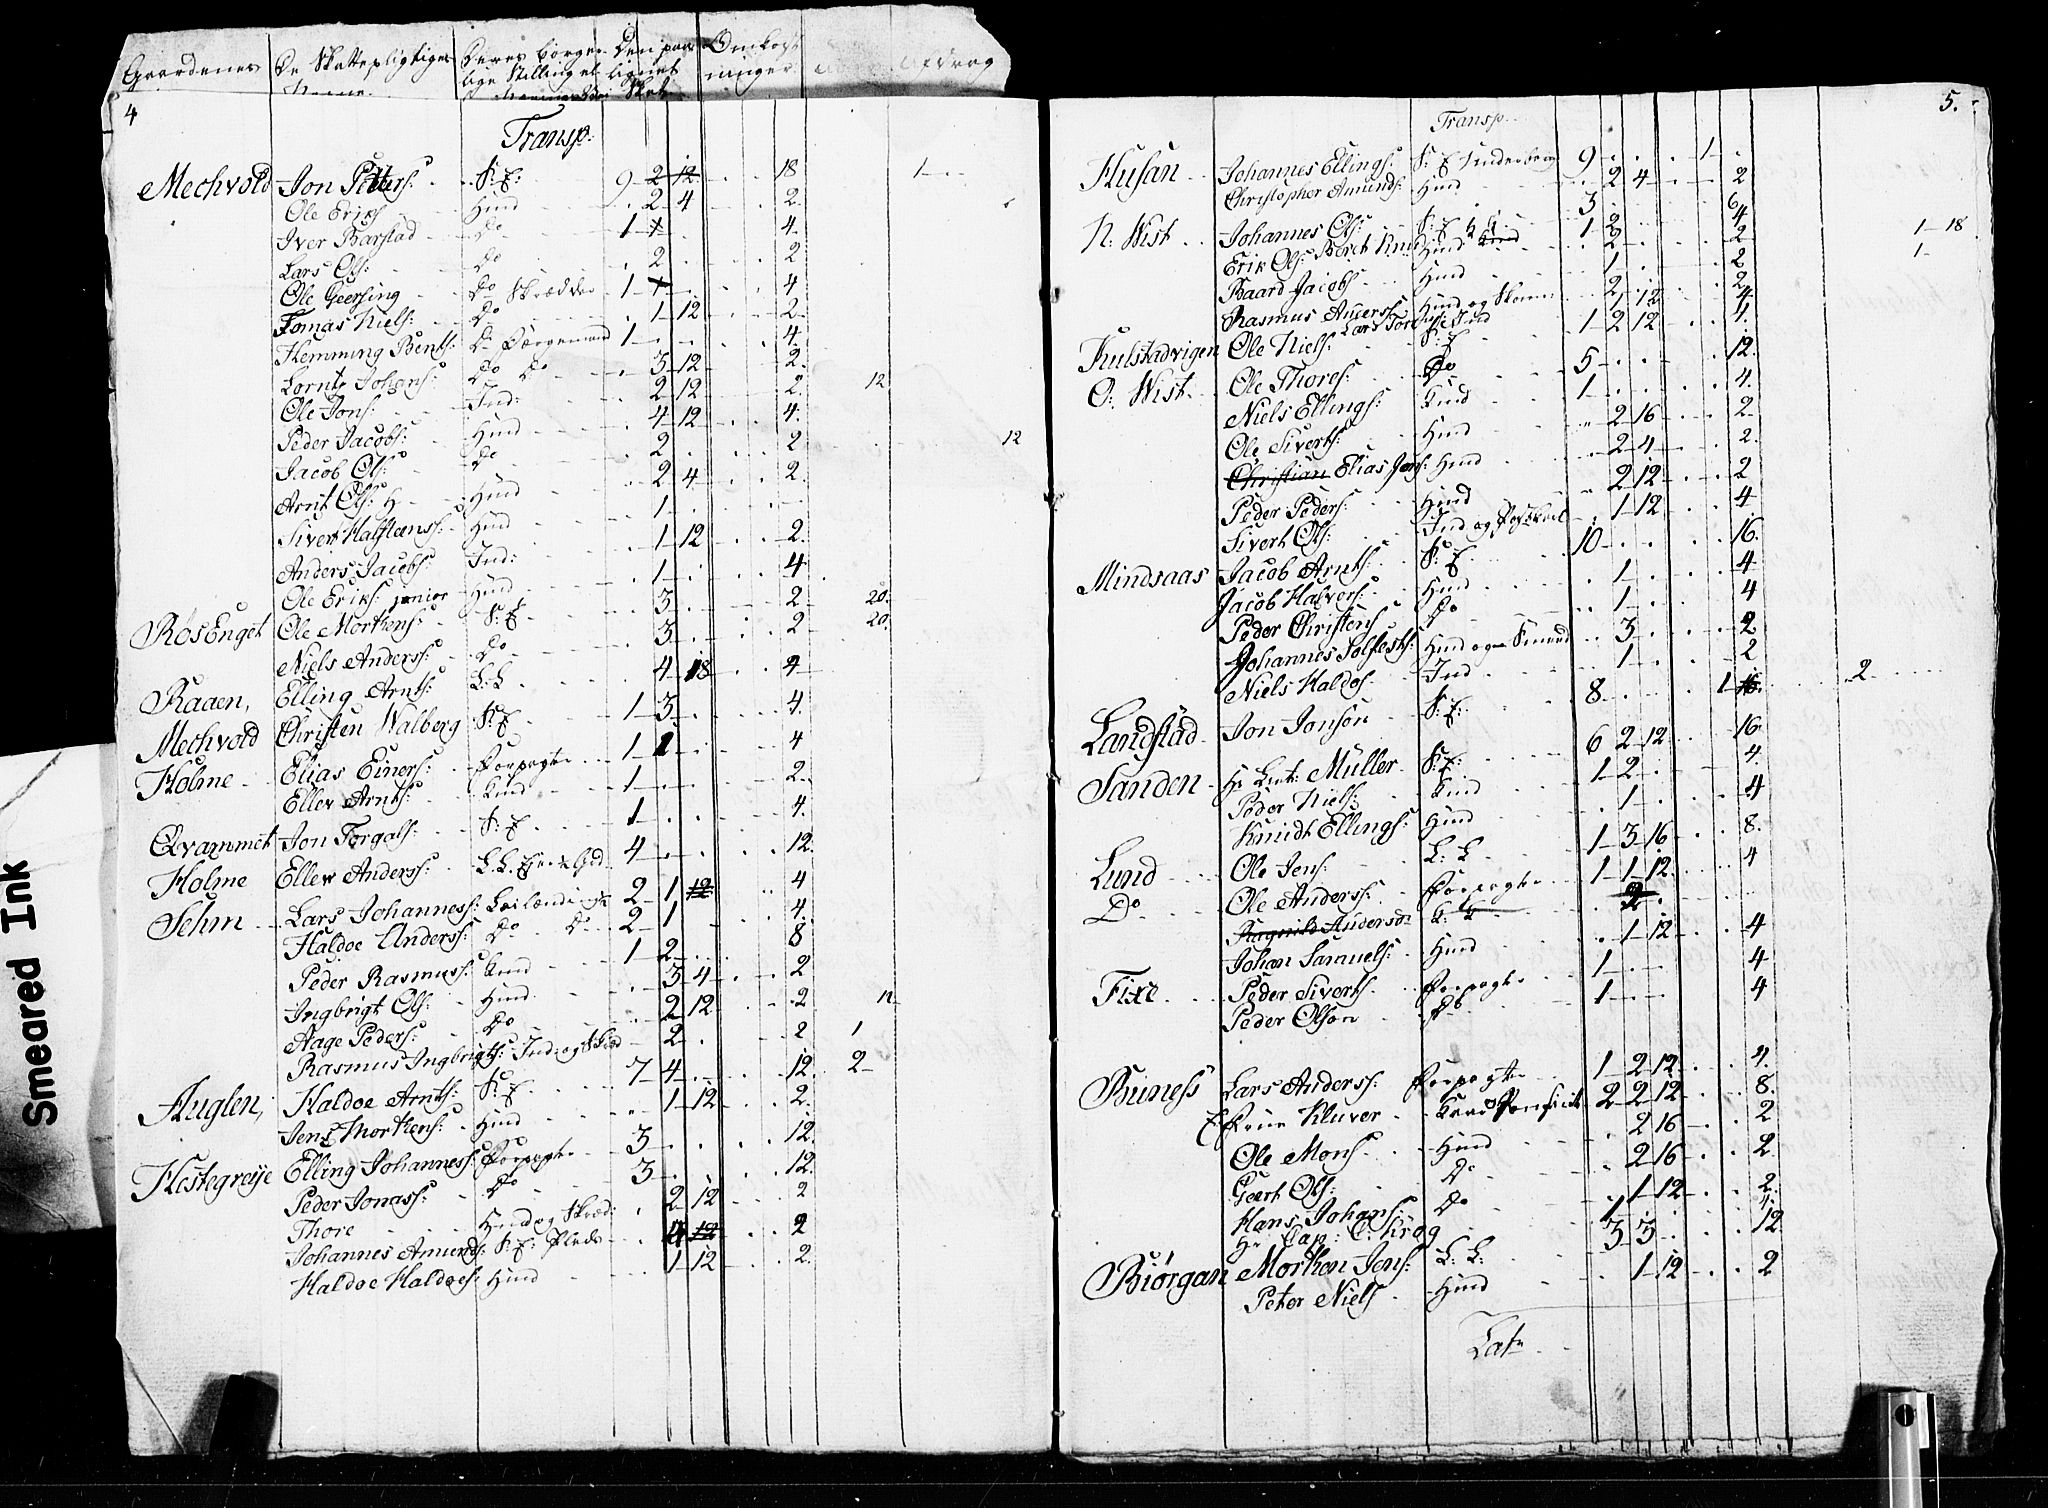 Gaardenes De Skattepligtiges Deres borger- Den paa- Omkost-
Navne. lige Stilling el. lignet ninger Afdrag
Skat
4
Transp:
Mechvold Jon Petters: S: E: 9 2 12 18 1
Ole Eriks Huusmd 2 4 2
Iver Barstad Do 1 4
Lars Ols: Do 2 2
Ole Geersing Do Skrædder 1 4
Tomas Niels: Do 1 12 2
Hemming Bents: Do 1 4
Lornts Johans: Do Do 3 12 2
Ole Jons: Ind: 2 12 2 12
Peder Jacobs: Huusmd 4 12 4
Jacob Ols: Do 2 2 12
Arnt Ols: H Huusmd 2 4 2
Sivert Halsteens: Huusmd 1
Anders Jacobs: Ind: 1 12 2
Ole Eriks junior Huusmd 1 4
RøsEnget Ole Mortens: S: E 3 2 20
Niels Anders: Do 3 2 20
Raaen, Elling Arnts: L: L 4 18 4
Mechvold Christen Walberg S: E: 1 3 4
Holme Elias Einers: Forpagter 1 1 4
Ellev Arnts: 1 2
Qvammet Jon Torgals: S: E 1 4
Holme Ellev Anders: L. L. 4 12
Sehm Lars Johannes: Leilænding 2 1 12 4
Haldoe Anders: Do Do 2 1 4
Peder Rasmus: 1 2 8
Ingbrigt Ols: Huusmd 3 4 2
Aage Peders: Do 2 12 2 12
Rasmus Ingbrigts: Ind: og 2 2 1
Huglen, Haldoe Arnts: S: E 7 4 12 2
Jens Mortens: Huusmd 1 12 2
Hestegreye Elling Johannes: Forpagter 3 12
Peder Jonas: Do 3 12
Thore Huusmd og Skræd: 2 12 2
Johannes Amunds: S: E: 4 12 2
Haldoe Haldoes: Huusmd 1 12 2
5.
Transp.
Husan Johannes Ellings: S: E 9 1
Christopher Amunds: Huusmd 2 4 2
N: Wist Johannes Ols: S: E 3 6 1 18
Erik Ols: 1 2 4 1
Baard Jacobs Huusmd 1 2
Rasmus Anders: Huusmd og 2 2
Kulstadvigen Ole Niels: S: E 1 2 12 4
O: Wist Ole Thores: Do 5 12
Niels Ellings: 1 4
Ole Siverts: Huusmd 2 16 2
Christian Elias Jons: Huusmd 2 4 2
Peder Peders: Huusmd 2 12 2
Sivert Ols: Ind og 1 12 4
Mindsaas Jacob Arnts: S: E 10 16
Jacob Halvers: Huusmd 1 4
Peder Christens Do 1 4
Johannes Solfests: Huusmd og 3 2
Niels Haldos Ind 1 2
Landstad Jon Jonsøn S: E: 8 1 16 2
Sanden Hr Leut: Müller S: E: 6 2 12 16
Peder Niels: 1 2 4
Knudt Ellings: Huusmd 1 4
Lund Ole Jens L: L 1 3 16 8
Do Ole Anders: Forpagter 1 1 12 4
Ragnild Anderso L: L 2
Johan Samuels: Huusmd 1 12 4
Fixe Peder Siverts Forpagter 1 4
Peder Olson Do 1 4
Buness Lars Anders: Forpagter 1 2 12 4
Frue Kluver 2 2 12 8
Ole Mons Huusmd 2 16 2
Geert Ols: Do 2 16 2
Hans Johans: Do 1 12 2
Hr Cap: C: Krog 1 4
Biørgan Morten Jens: L: L: 3 3 12
Peter Niels Huusmd 1 12 2
Late
Smeared Ink